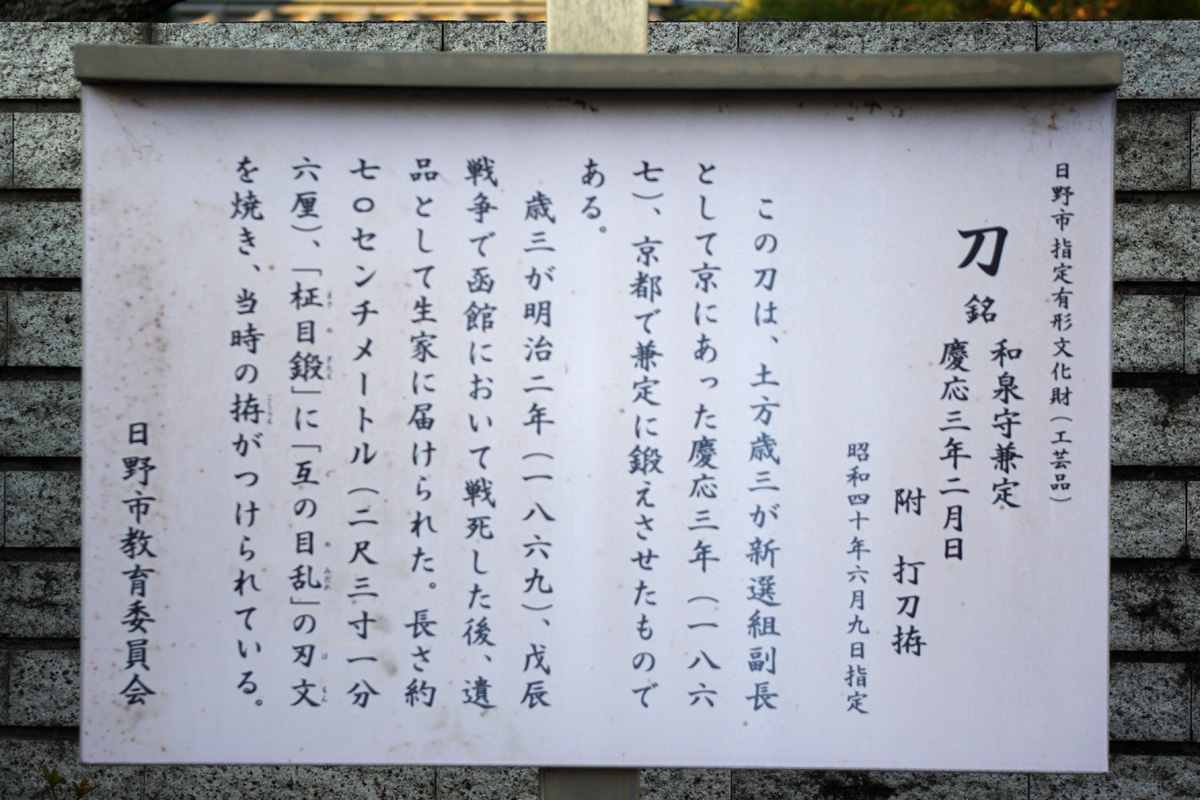 日野市指定有形文化財（工芸品）
刀 銘 和泉守兼定
慶応三年二月日
附 打刀拵
昭和四十年六月九日指定
この刀は、土方歳三が新選組副長
として京にあった慶応三年（一八六
七）、京都で兼定に鍛えさせたもので
ある。
歳三が明治二年（一八六九）、戊辰
戦争で函館において戦死した後、遺
品として生家に届けられた。長さ約
七〇センチメートル（二尺三寸一分
六厘）、「柾目鍛」に「互の目乱」の刃文
を焼き、当時の拵がつけられている。
日野市教育委員会